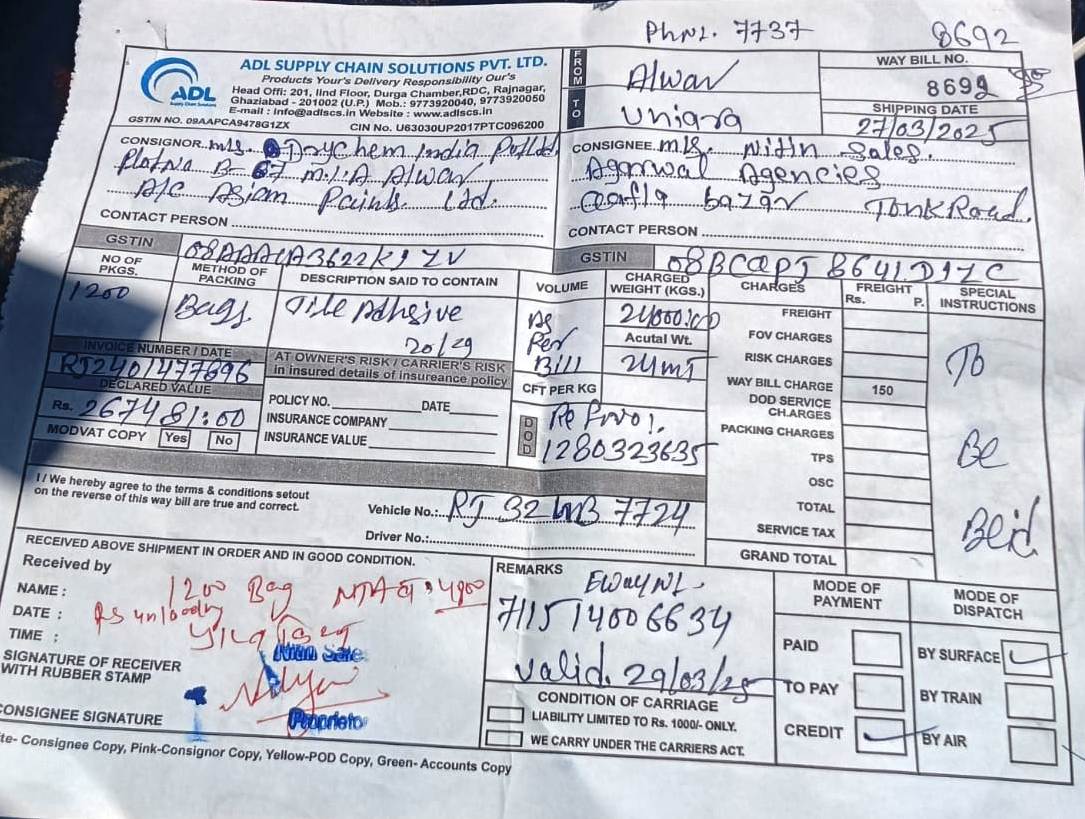 PhNo. 7737
8692
ADL
Supply Chain Solutions
ADL SUPPLY CHAIN SOLUTIONS PVT. LTD.
Products Your's Delivery Responsibility Our's
Head Offi: 201, IInd Floor, Durga Chamber,RDC, Rajnagar,
Ghaziabad - 201002 (U.P.) Mob.: 9773920040, 9773920050
E-mail : info@adlscs.in Website : www.adlscs.in
GSTIN NO. 09AAPCA9478G1ZX CIN No. U63030UP2017PTC096200
FROM Alwar
TO Uniara
WAY BILL NO.
8692
SHIPPING DATE
27/03/2025
CONSIGNOR M/s. Drychem India Pvt Ltd
Plot No B- 67 M.I.A Alwar
A/C Asian Paints Ltd.
CONTACT PERSON
CONSIGNEE M/s. Nitin Sales.
Agarwal Agencies
bazar Tonk Road.
CONTACT PERSON
GSTIN
GSTIN
NO OF PKGS.
METHOD OF PACKING
DESCRIPTION SAID TO CONTAIN
VOLUME
CHARGED WEIGHT (KGS.)
CHARGES
FREIGHT Rs. P.
SPECIAL INSTRUCTIONS
1200 Bags Tile Adhesive
20/29
As Per Bill
24000.00
Acutal Wt.
24MT
INVOICE NUMBER / DATE
RJ2401477896
DECLARED VALUE
Rs. 267481:00
MODVAT COPY Yes No
AT OWNER'S RISK / CARRIER'S RISK
in insured details of insureance policy
POLICY NO. DATE
INSURANCE COMPANY
INSURANCE VALUE
CFT PER KG
DOD
1280323635
FREIGHT
FOV CHARGES
RISK CHARGES
WAY BILL CHARGE 150
DOD SERVICE CHARGES
PACKING CHARGES
TPS
OSC
TOTAL
SERVICE TAX
GRAND TOTAL
To
Be
I / We hereby agree to the terms & conditions setout
on the reverse of this way bill are true and correct.
Vehicle No.: RJ 32 7724
Driver No.:
RECEIVED ABOVE SHIPMENT IN ORDER AND IN GOOD CONDITION.
Received by
NAME : 1200 Bag
DATE :
TIME :
SIGNATURE OF RECEIVER
WITH RUBBER STAMP
CONSIGNEE SIGNATURE
Proprietor
REMARKS
Eway No.
711514006634
valid. 29/03/25
CONDITION OF CARRIAGE
LIABILITY LIMITED TO Rs. 1000/- ONLY.
WE CARRY UNDER THE CARRIERS ACT.
MODE OF PAYMENT
PAID
TO PAY
CREDIT
MODE OF DISPATCH
BY SURFACE
BY TRAIN
BY AIR
te- Consignee Copy, Pink-Consignor Copy, Yellow-POD Copy, Green- Accounts Copy